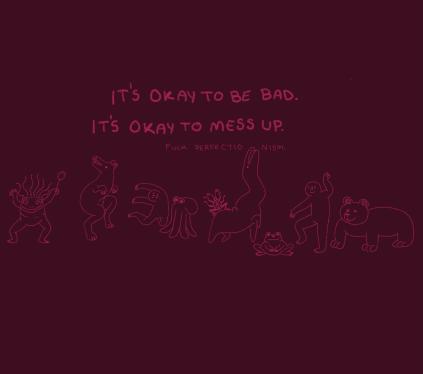 IT'S OKAY TO BE BAD.
IT'S OKAY TO MESS UP.
FUCK PERFECTIO NISM.